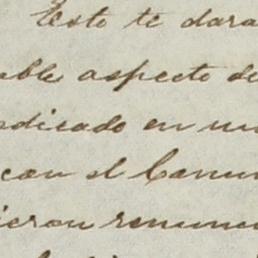 Esto te dara
ble aspecto de
dicado en un
con el Canu
ieron renunci